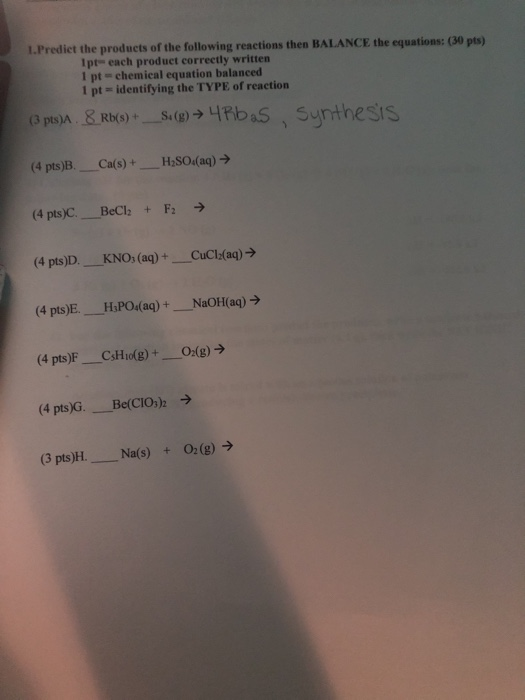 1.Predict the products of the following reactions then BALANCE the equations: (30 pts)
1pt= each product correctly written
1 pt = chemical equation balanced
1 pt = identifying the TYPE of reaction
(3 pts)A. 8 Rb(s) + __S₄(g) → 4Rb₂S, Synthesis
(4 pts)B. __Ca(s) + __ H₂SO₄(aq) →
(4 pts)C. __BeCl₂ + F₂ →
(4 pts)D. __KNO₃ (aq) + __CuCl₂(aq) →
(4 pts)E. __H₃PO₄(aq) + __NaOH(aq) →
(4 pts)F __C₅H₁₀(g) + __O₂(g) →
(4 pts)G. __Be(ClO₃)₂ →
(3 pts)H. __ Na(s) + O₂ (g) →